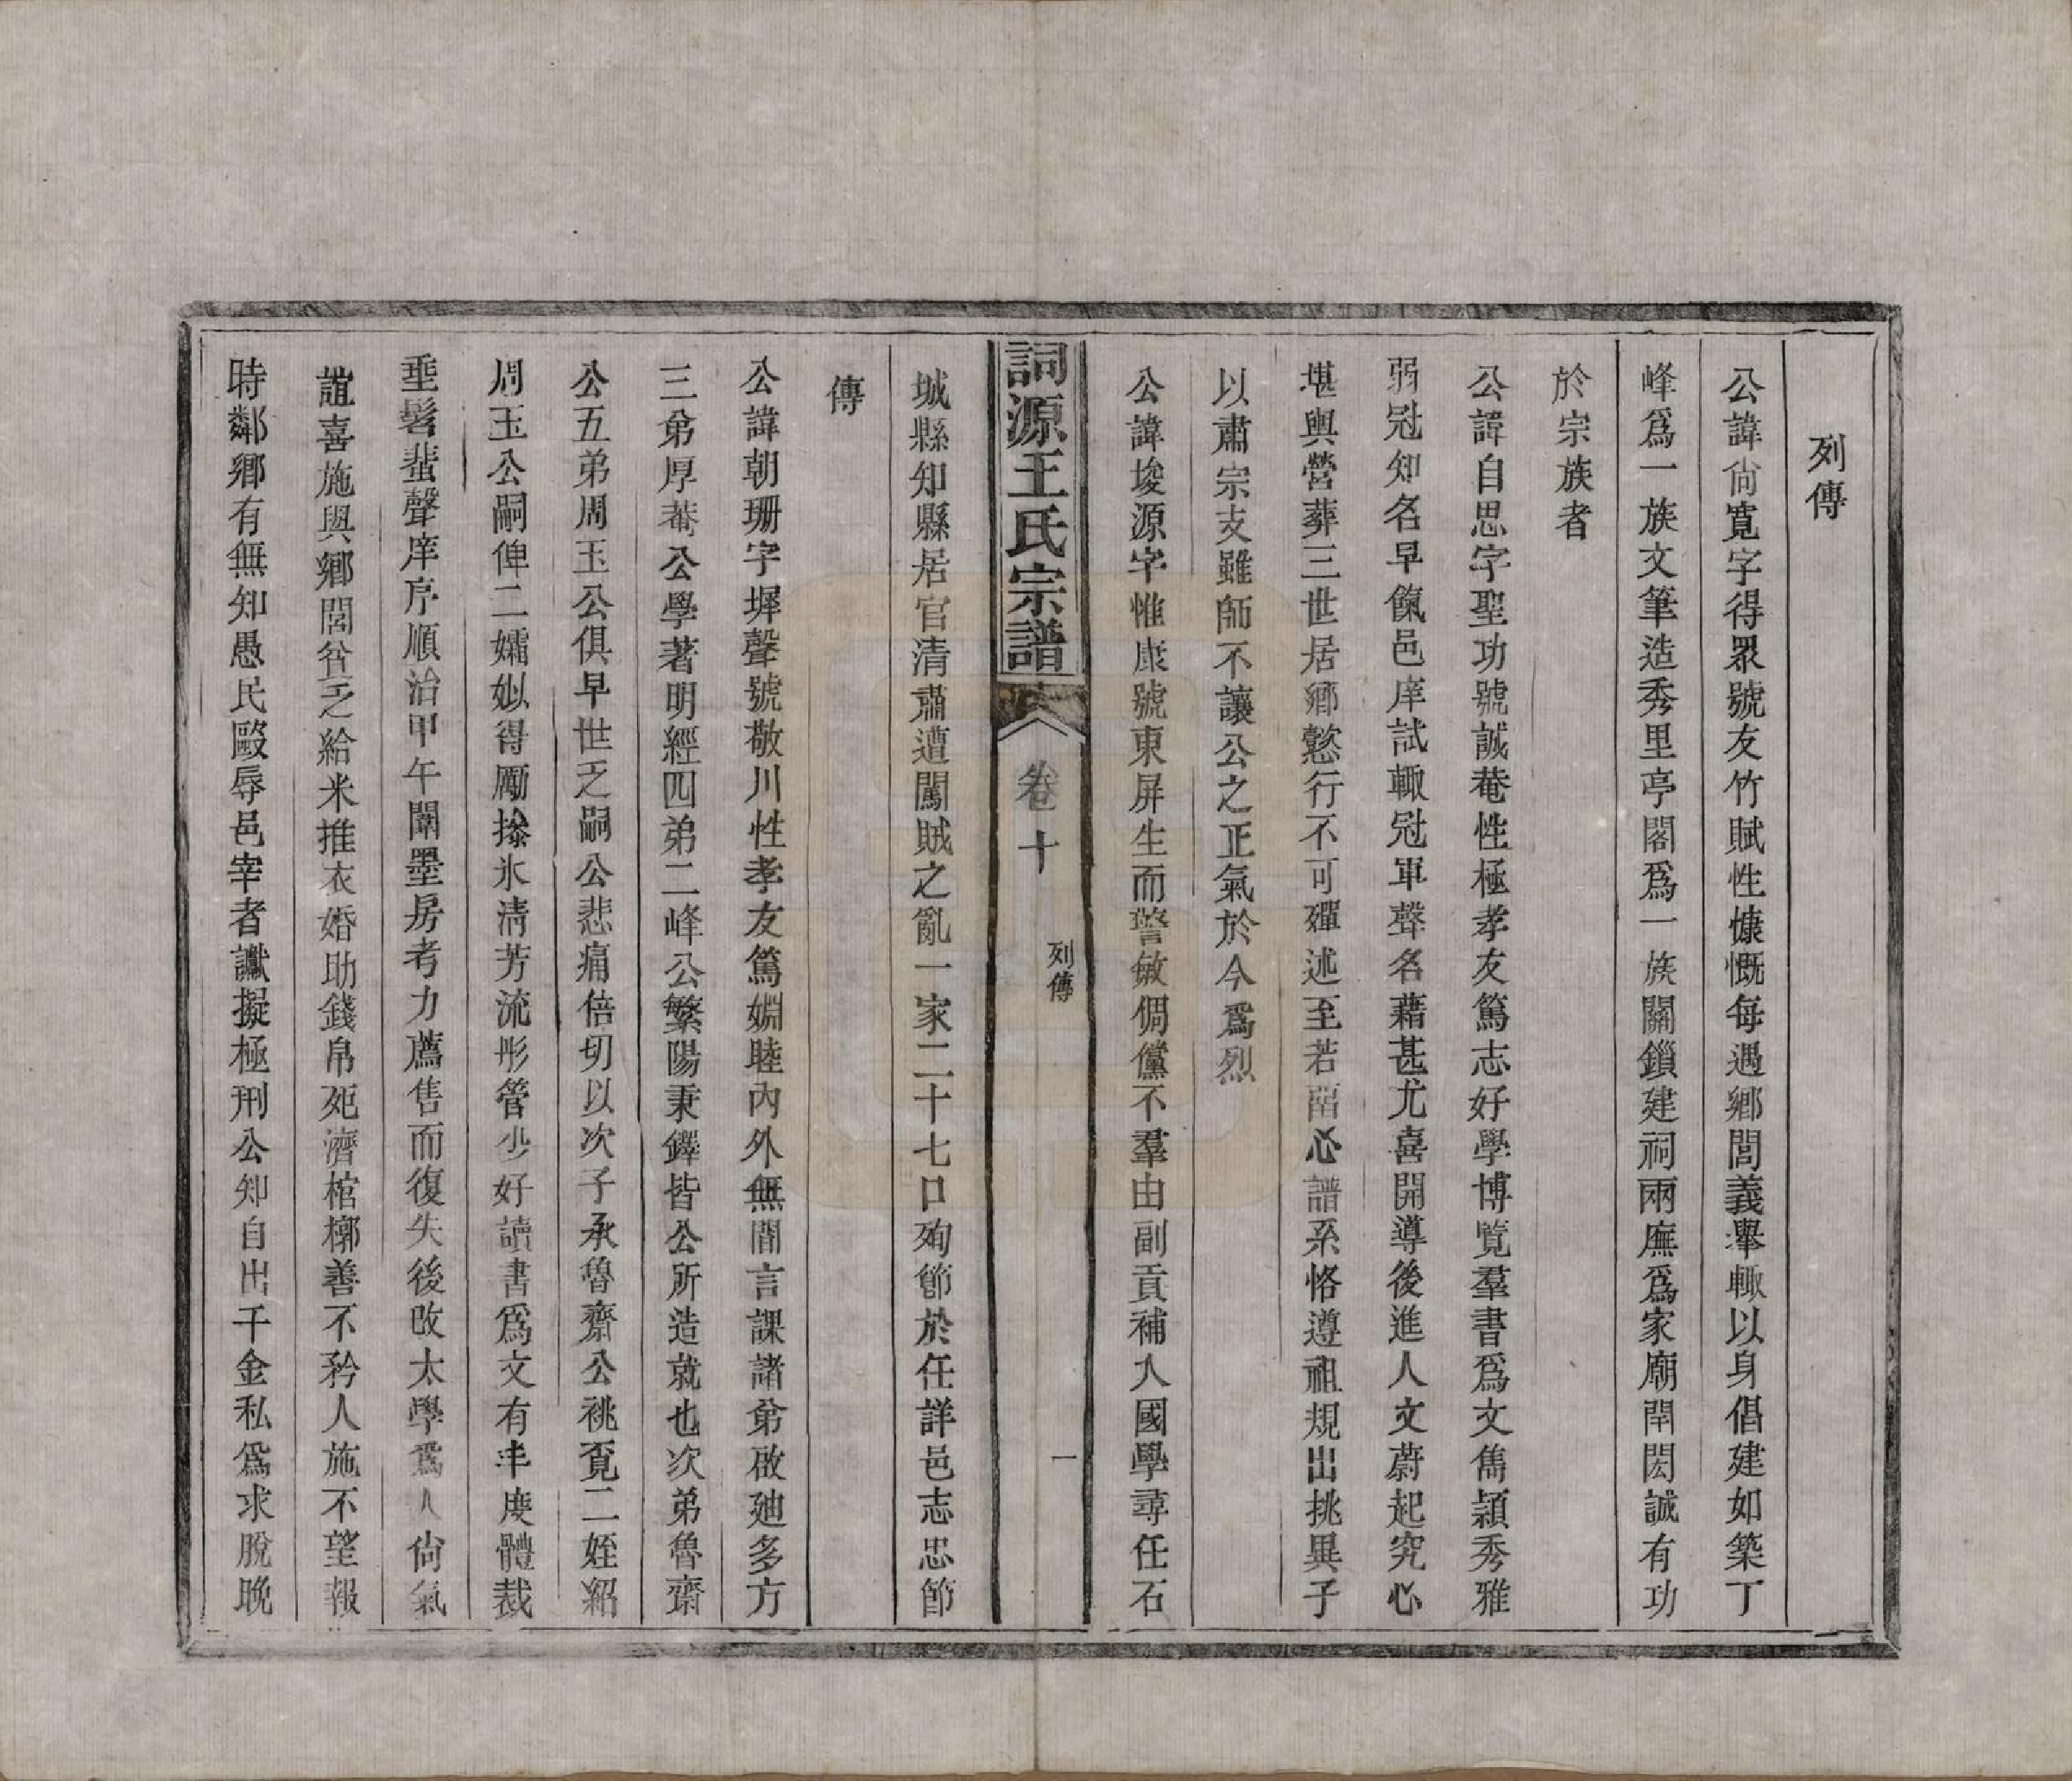 列傳
公諱尙寬字得眾號友竹賦性慷慨每遇鄉閭義舉輙以身倡建如築丁
峰爲一族文筆造秀里亭閣爲一族關鎖建祠兩廡爲家廟閈閎誠有功
於宗族者
公諱自思字聖功號誠菴性極孝友篤志好學博覽羣書爲文雋穎秀雅
弱冠知名早餼邑庠試輙冠軍聲名藉甚尤喜開導後進人文蔚起究心
堪輿營葬三世居鄉懿行不可殫述至若畱心譜系恪遵祖規出挑異子
以肅宗支雖師不讓公之正氣於今爲烈
公諱埈源字惟康號東屏生而警敏倜儻不羣由副貢補入國學尋任石
詞源王氏宗譜
卷十
列傳
一
城縣知縣居官清肅遭闖賊之亂一家二十七口殉節於任詳邑志忠節
傳
公諱朝珊字墀聲號敬川性孝友篤婣睦內外無間言課諸弟啟廸多方
三弟厚菴公學著明經四弟二峰公繁陽秉鐸皆公所造就也次弟魯齋
公五弟周玉公俱早世乏嗣公悲痛倍切以次子承魯齋公祧覔二姪紹
周玉公嗣俾二孀姒得勵操氷清芳流彤管少好讀書爲文有丰度體裁
垂髫蜚聲庠序順治甲午闈墨房考力薦售而復失後改太學爲人尙氣
誼喜施與鄉閭貧乏給米推衣婚助錢帛死濟棺槨善不矜人施不望報
時鄰鄉有無知愚民毆辱邑宰者讞擬極刑公知自出千金私爲求脫晚